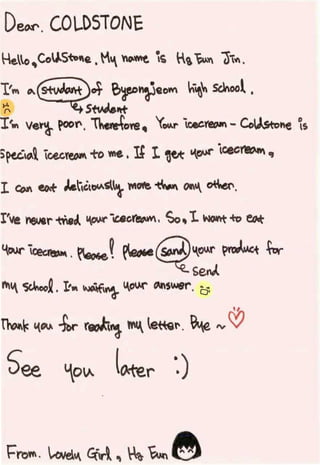 Dear. COLDSTONE
Hello, ColdStone. My name is Ha Eun Jin.
I'm a studant of Byeongjeom high school.
↳ student
I'm very poor. Therefore, Your icecream - Coldstone is
special icecream to me. If I get your icecream,
I can eat deliciouslly more than any other.
I've never tried your icecream. So, I want to eat
your icecream. Please! Please sand your product for
send
my school. I'm waiting your answer.
Thank you for reading my letter. Bye ~
See you later :)
From. Lovely Girl, Ha Eun